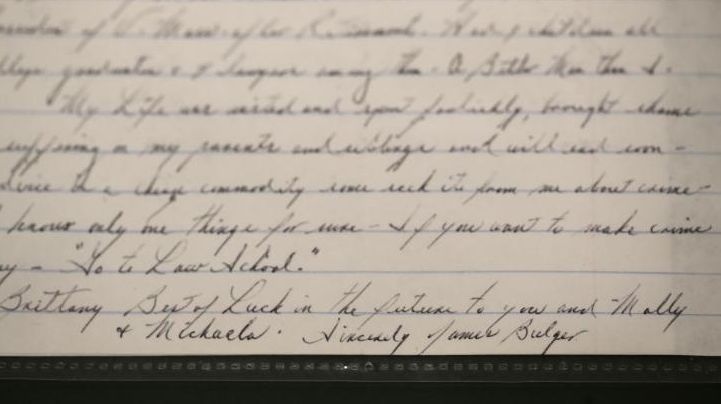 of U. Mass after Retirement. Had 9 children all
college graduates & 4 lawyers among them - A Better Man than I -
My Life was wasted and spent foolishly, brought shame
suffering on my parents and siblings and will end soon -
Advice is a cheap commodity some seek it from me about crime -
I know only one thing for sure - If you want to make crime
pay - "Go to Law School."
Brittany Best of Luck in the future to you and Molly
& Michaela. Sincerely James Bulger